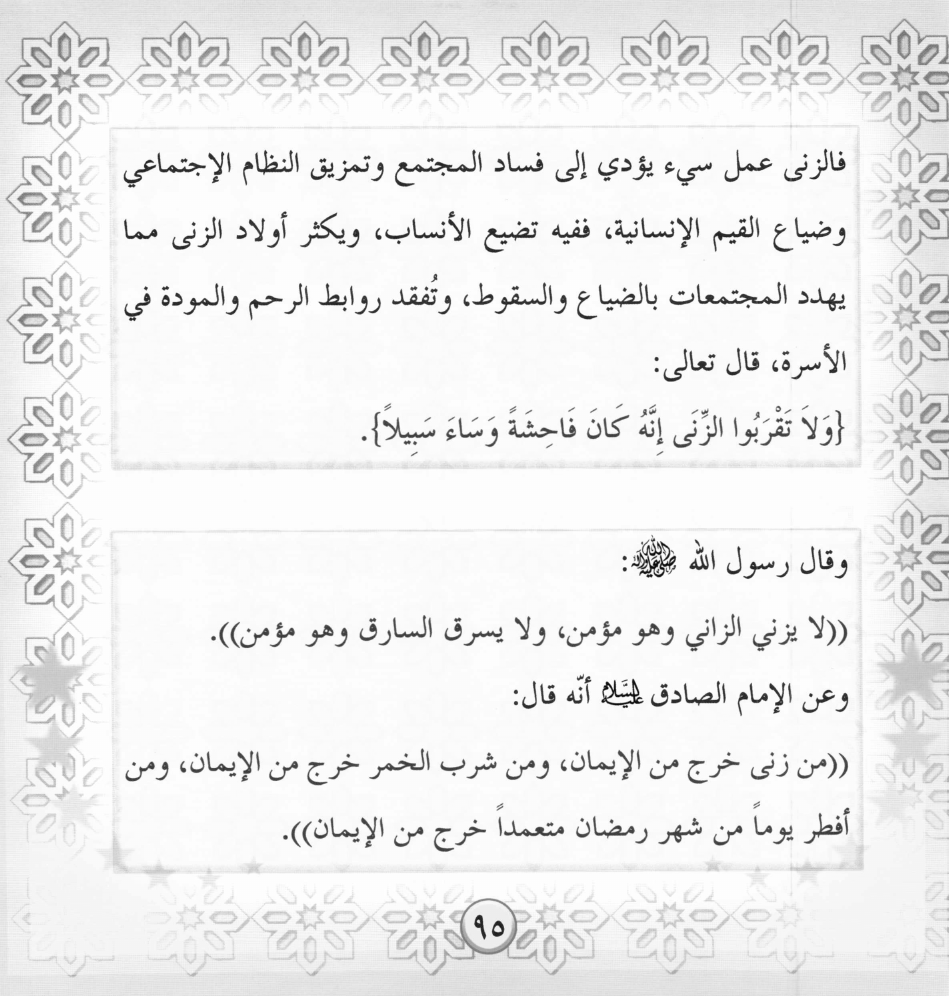 فالزنى عمل سيء يؤدي إلى فساد المجتمع وتمزيق النظام الإجتماعي
وضياع القيم الإنسانية، ففيه تضيع الأنساب، ويكثر أولاد الزنى مما
يهدد المجتمعات بالضياع والسقوط، وتُفقد روابط الرحم والمودة في
الأسرة، قال تعالى:
{وَلاَ تَقْرَبُوا الزِّنَى إِنَّهُ كَانَ فَاحِشَةً وَسَاءَ سَبِيلاً}.
وقال رسول الله ﷺ:
((لا يزني الزاني وهو مؤمن، ولا يسرق السارق وهو مؤمن)).
وعن الإمام الصادق عليه السلام أنّه قال:
((من زنى خرج من الإيمان، ومن شرب الخمر خرج من الإيمان، ومن
أفطر يوماً من شهر رمضان متعمداً خرج من الإيمان)).
٩٥